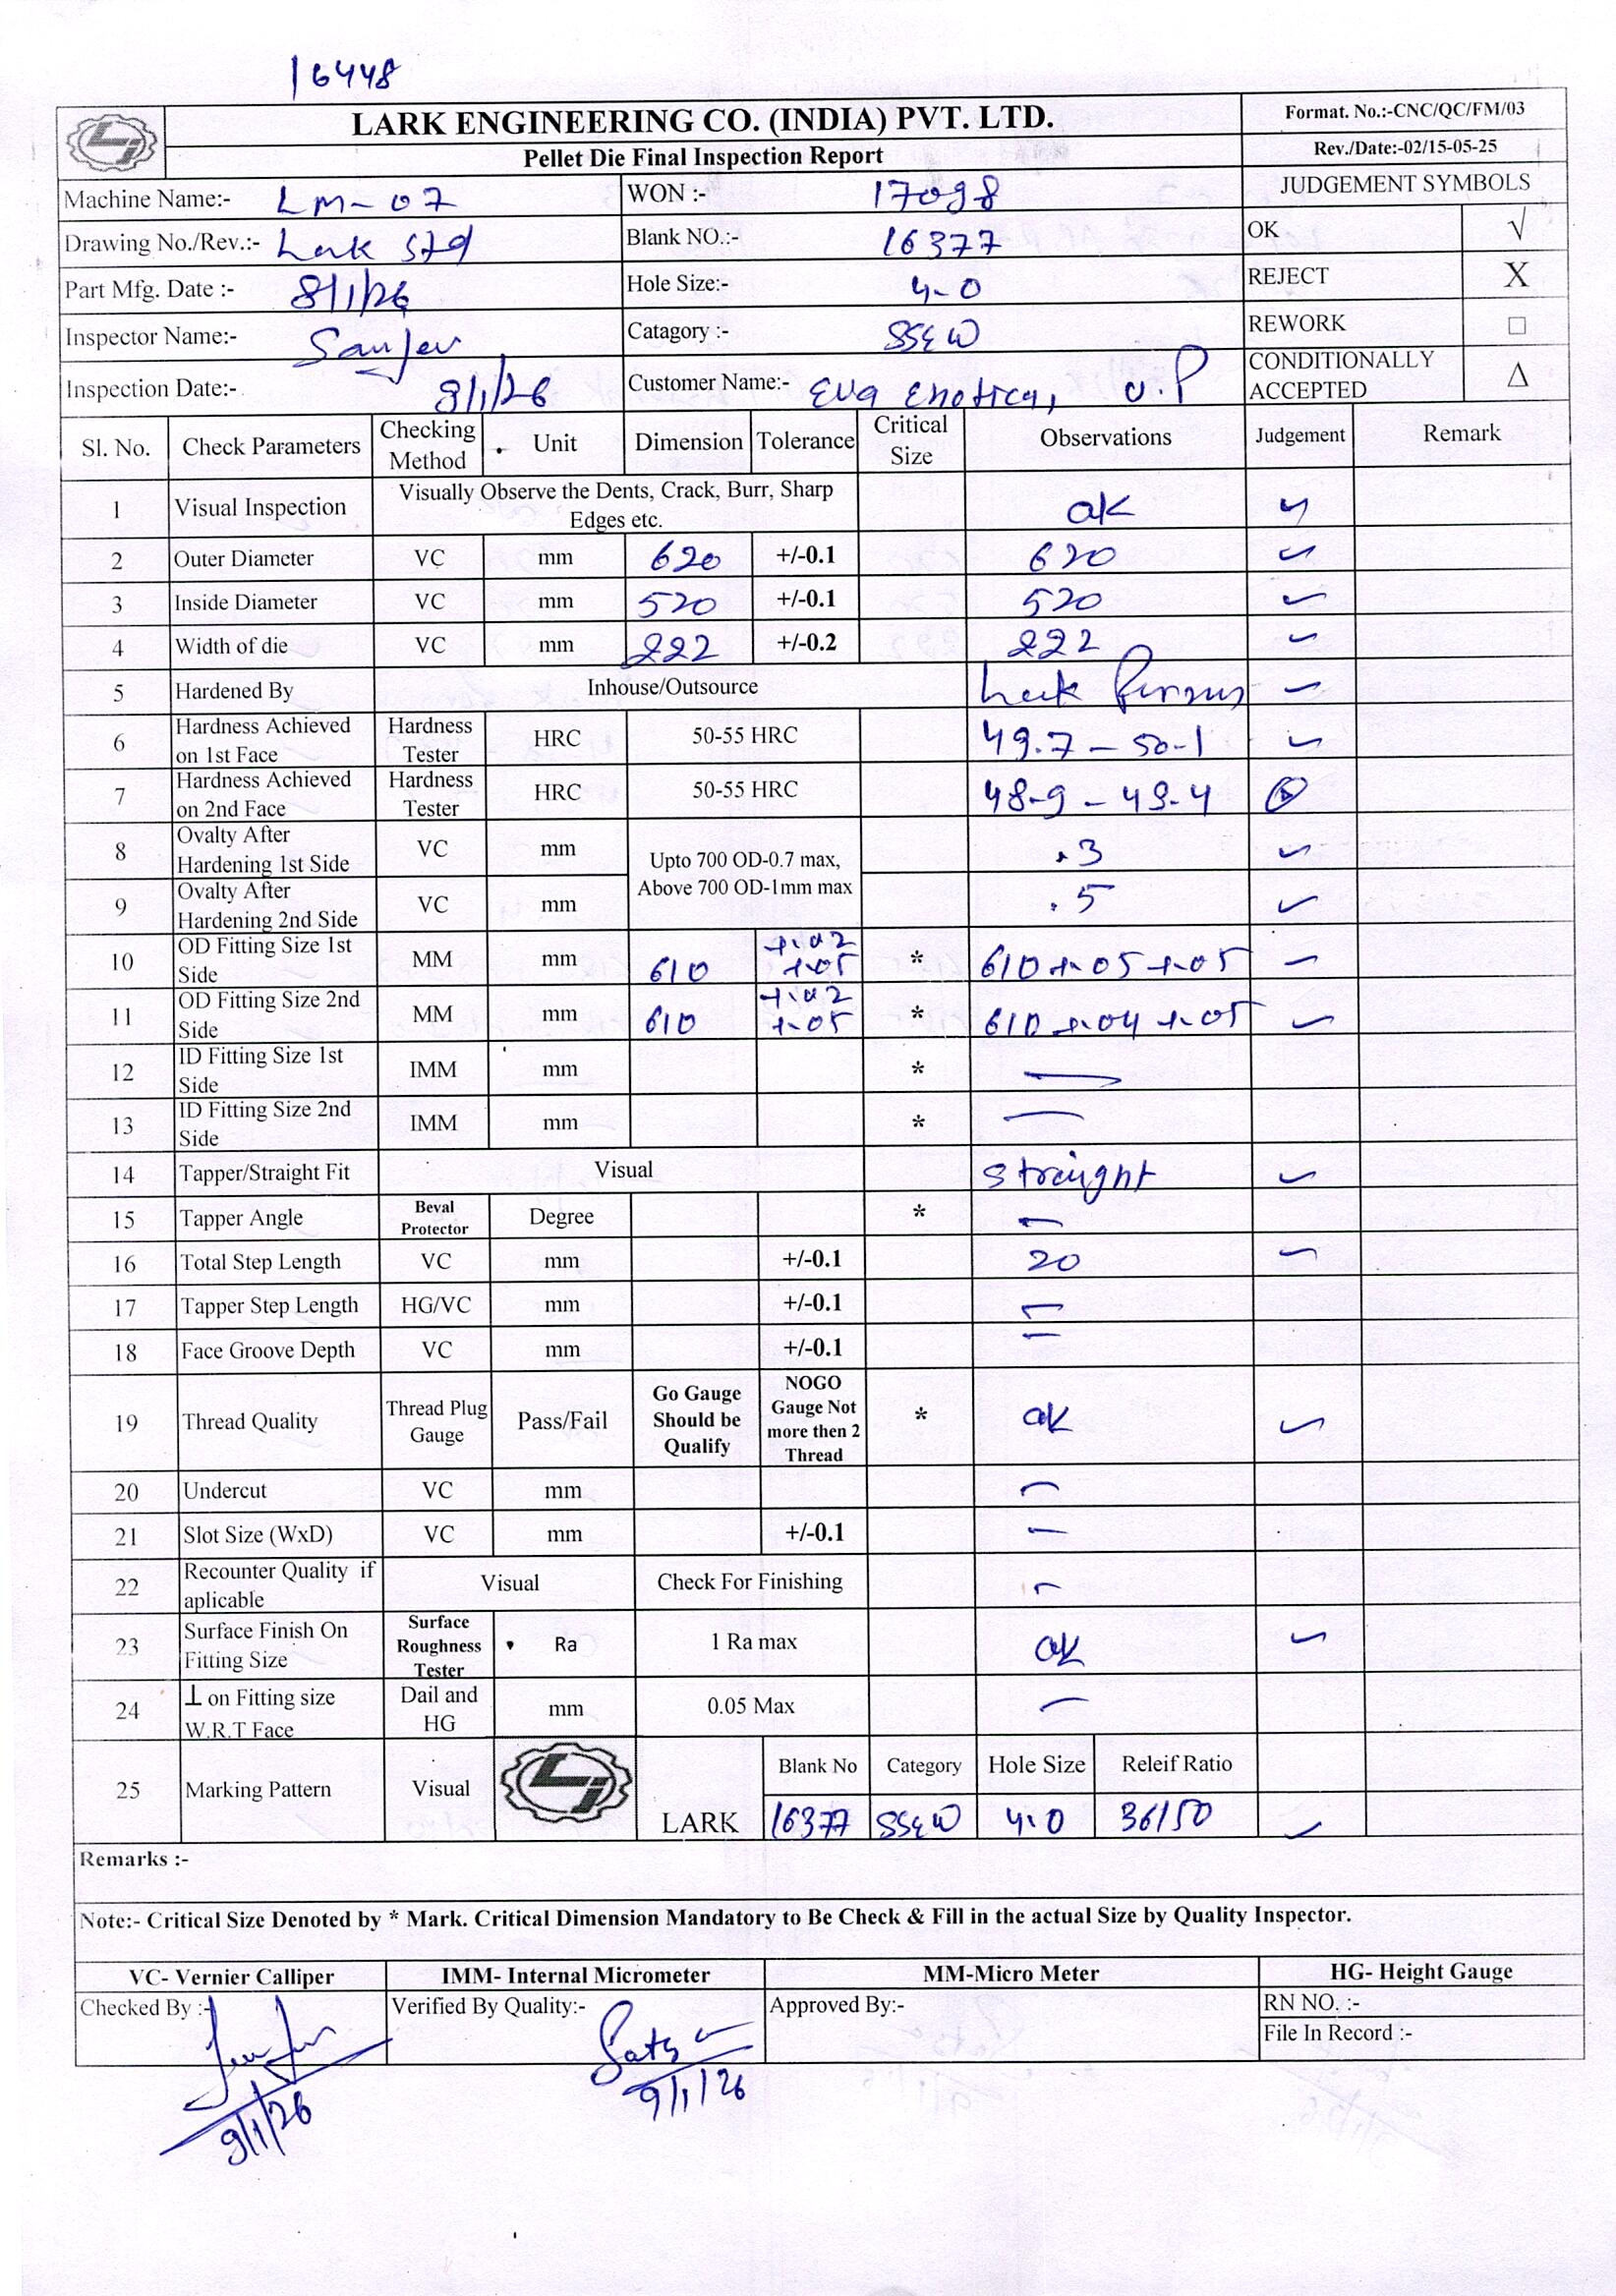 16448
LARK ENGINEERING CO. (INDIA) PVT. LTD.
Format. No.:-CNC/QC/FM/03
Pellet Die Final Inspection Report
Rev./Date:-02/15-05-25
Machine Name:- LM-07 WON :- 17098 JUDGEMENT SYMBOLS
Drawing No./Rev.:- Lark std Blank NO.:- 16377 OK √
Part Mfg. Date :- 8/1/26 Hole Size:- 4-0 REJECT X
Inspector Name:- Sanjev Catagory :- SS&W REWORK □
Inspection Date:- 8/1/26 Customer Name:- Eva Exotica, U.P CONDITIONALLY ACCEPTED Δ
Sl. No. Check Parameters Checking Method Unit Dimension Tolerance Critical Size Observations Judgement Remark
1 Visual Inspection Visually Observe the Dents, Crack, Burr, Sharp Edges etc. ok ✓
2 Outer Diameter VC mm 620 +/-0.1 620 ✓
3 Inside Diameter VC mm 520 +/-0.1 520 ✓
4 Width of die VC mm 222 +/-0.2 222 ✓
5 Hardened By Inhouse/Outsource Lark ✓
6 Hardness Achieved on 1st Face Hardness Tester HRC 50-55 HRC 49.7 - 50-1 ✓
7 Hardness Achieved on 2nd Face Hardness Tester HRC 50-55 HRC 48-9 - 49-4
8 Ovalty After Hardening 1st Side VC mm Upto 700 OD-0.7 max, Above 700 OD-1mm max .3 ✓
9 Ovalty After Hardening 2nd Side VC mm .5 ✓
10 OD Fitting Size 1st Side MM mm 610 +.02 +.05 * 610 +.05 +.05 ✓
11 OD Fitting Size 2nd Side MM mm 610 +.02 +.05 * 610 +.04 +.05 ✓
12 ID Fitting Size 1st Side IMM mm * —
13 ID Fitting Size 2nd Side IMM mm * —
14 Tapper/Straight Fit Visual Straight ✓
15 Tapper Angle Beval Protector Degree * —
16 Total Step Length VC mm +/-0.1 20 ✓
17 Tapper Step Length HG/VC mm +/-0.1 —
18 Face Groove Depth VC mm +/-0.1 —
19 Thread Quality Thread Plug Gauge Pass/Fail Go Gauge Should be Qualify NOGO Gauge Not more then 2 Thread * ok ✓
20 Undercut VC mm —
21 Slot Size (WxD) VC mm +/-0.1 —
22 Recounter Quality if aplicable Visual Check For Finishing —
23 Surface Finish On Fitting Size Surface Roughness Tester Ra 1 Ra max ok ✓
24 ⊥ on Fitting size W.R.T Face Dail and HG mm 0.05 Max —
25 Marking Pattern Visual LARK Blank No Category Hole Size Releif Ratio
16377 SS&W 4.0 36/50 ✓
Remarks :-
Note:- Critical Size Denoted by * Mark. Critical Dimension Mandatory to Be Check & Fill in the actual Size by Quality Inspector.
VC- Vernier Calliper IMM- Internal Micrometer MM-Micro Meter HG- Height Gauge
Checked By :- Verified By Quality:- Approved By:- RN NO. :-
File In Record :-
9/1/26 9/1/26